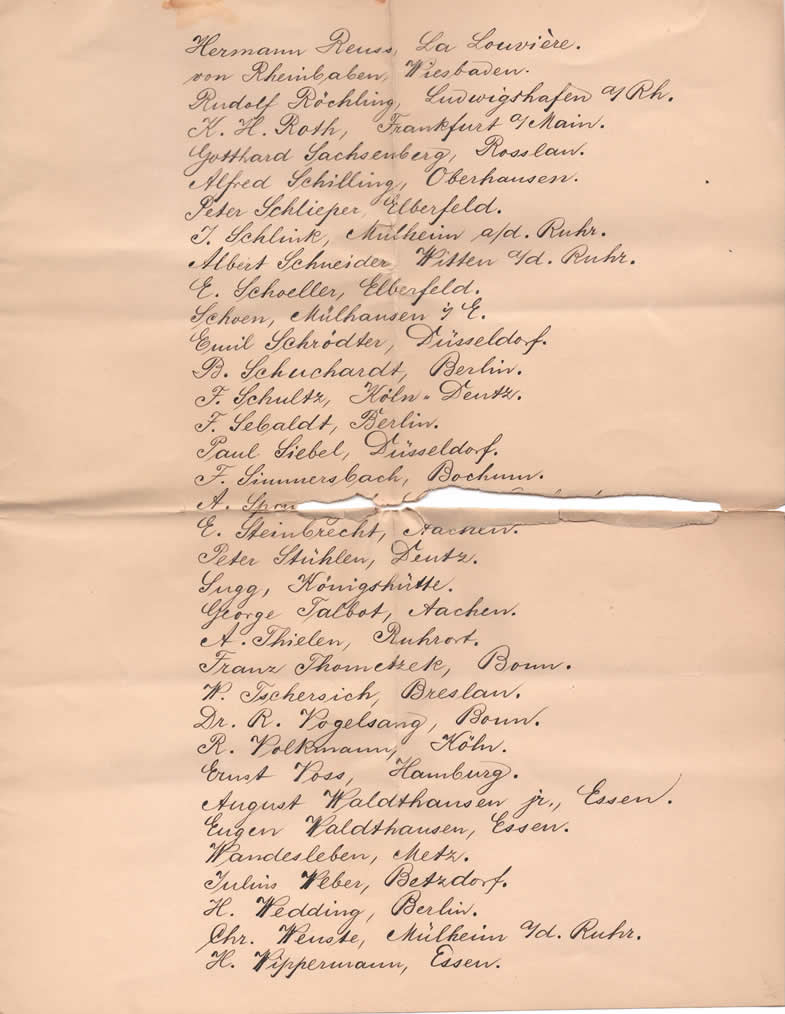 Hermann Reuss, La Louvière.
von Rheinbaben, Wiesbaden.
Rudolf Röchling, Ludwigshafen a/Rh.
K. H. Roth, Frankfurt a/Main.
Gotthard Sachsenberg, Rosslau.
Alfred Schilling, Oberhausen.
Peter Schlieper, Elberfeld.
J. Schlink, Mülheim a/d. Ruhr.
Albert Schneider, Witten a/d. Ruhr.
E. Schoeller, Elberfeld.
Schoen, Mülhausen i/E.
Emil Schrödter, Düsseldorf.
B. Schuchardt, Berlin.
F. Schultz, Köln-Deutz.
F. Sebaldt, Berlin.
Paul Siebel, Düsseldorf.
F. Simmersbach, Bochum.
A.
E. Steinbrecht, Aachen.
Peter Stühlen, Deutz.
Sugg, Königshütte.
George Talbot, Aachen.
A. Thielen, Ruhrort.
Franz Thometzek, Bonn.
W. Tschersich, Breslau.
Dr. R. Vogelsang, Bonn.
R. Volkmann, Köln.
Ernst Voss, Hamburg.
August Waldthausen jr., Essen.
Eugen Waldthausen, Essen.
Wandesleben, Metz.
Julius Weber, Betzdorf.
H. Wedding, Berlin.
Chr. Wenste, Mülheim a/d. Ruhr.
H. Wippermann, Essen.